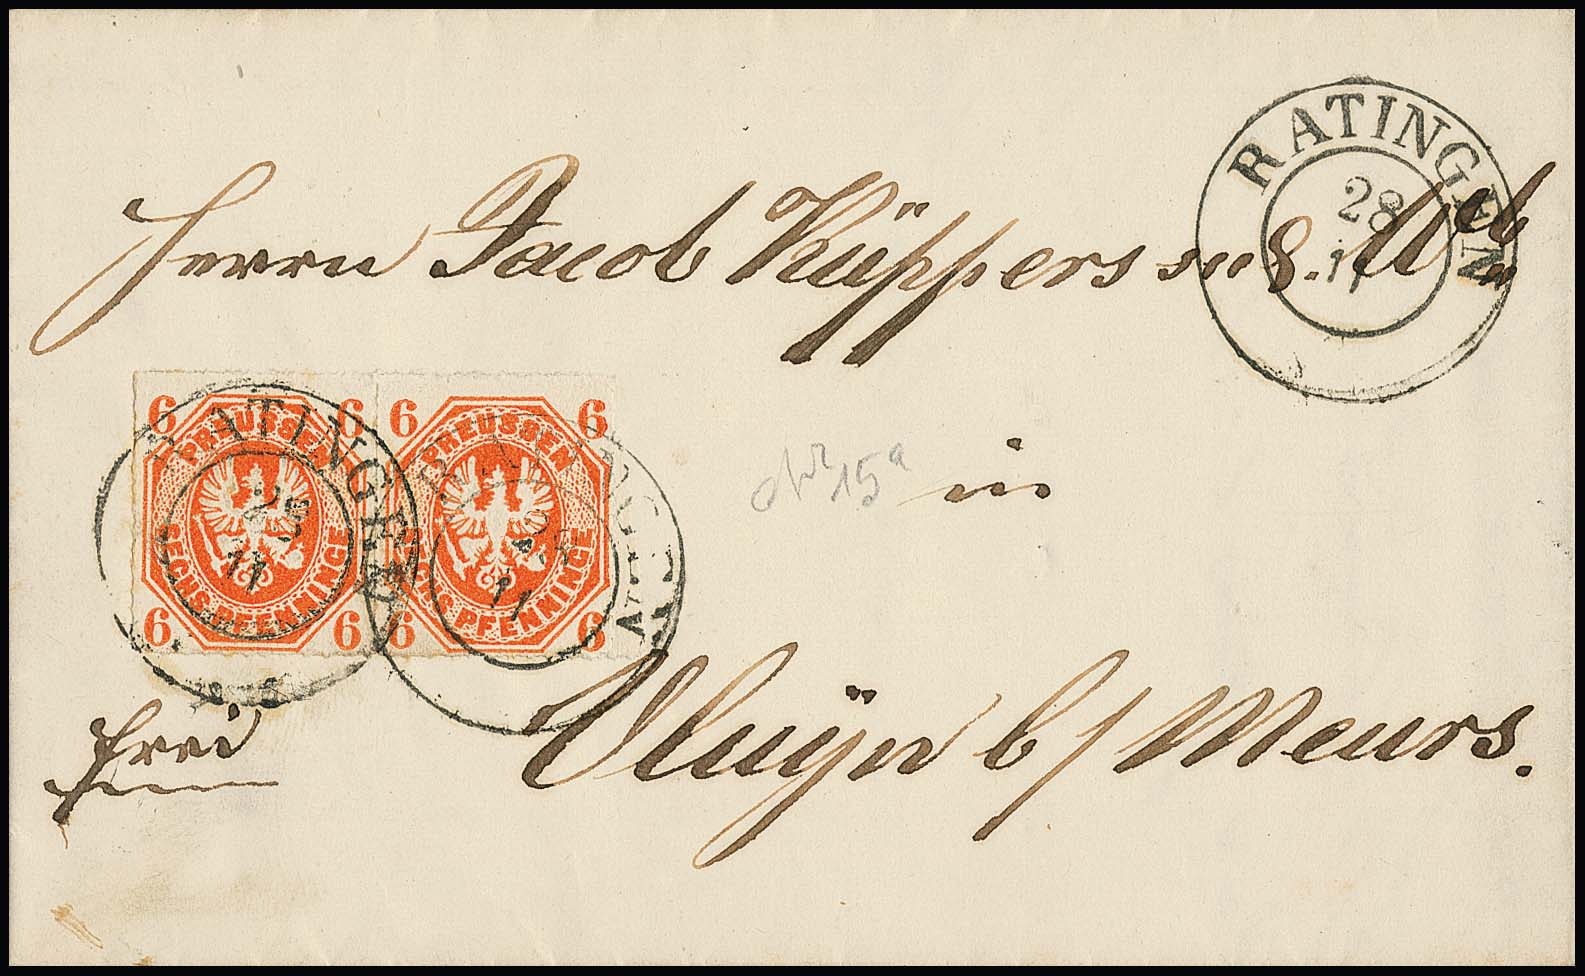 RATINGEN
28
11
Herrn Jacob Küppers
6 6 6 6
PREUSSEN
SECHS PFENNINGE
6 6 6 6
PREUSSEN
SECHS PFENNINGE
RATINGEN
28
11
RATINGEN
28
11
15a
in
frei
Vluÿn b/Meurs.